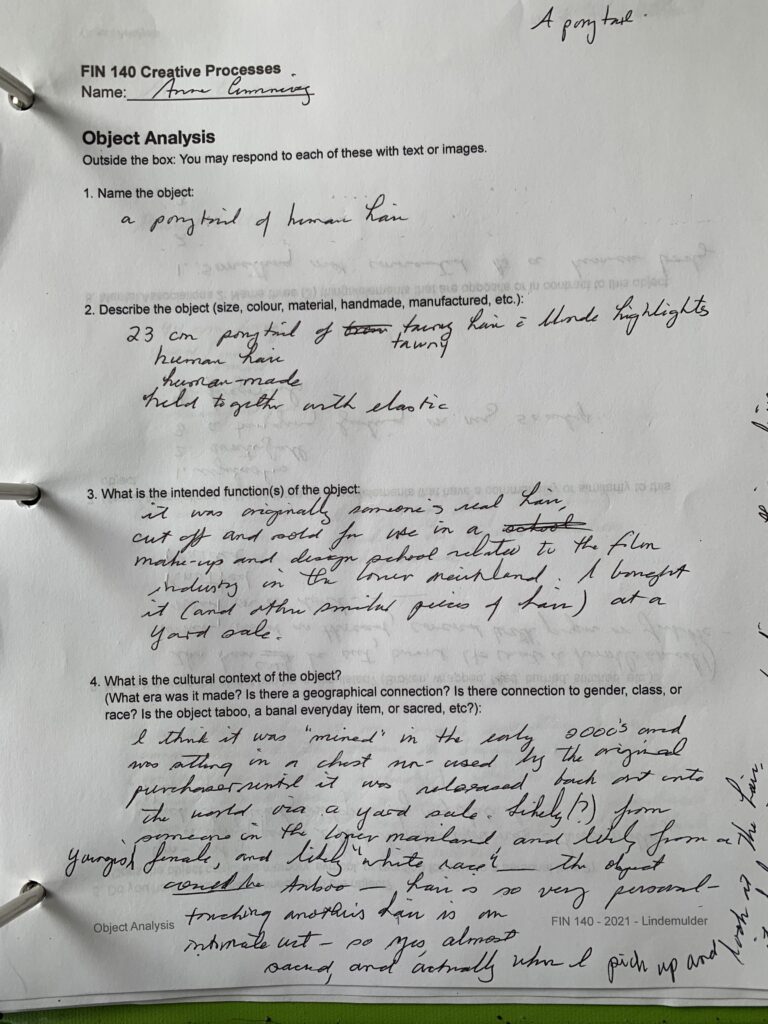 A ponytail.
FIN 140 Creative Processes
Name: Anne Cummings
Object Analysis
Outside the box: You may respond to each of these with text or images.
1. Name the object:
a ponytail of human hair
2. Describe the object (size, colour, material, handmade, manufactured, etc.):
23 cm ponytail of tawny hair c blonde highlights
tawny
human hair
human-made
held together with elastic
3. What is the intended function(s) of the object:
it was originally someone's real hair,
cut off and sold for use in a school
make-up and design school related to the film
industry in the lower mainland. I bought
it (and other similar pieces of hair) at a
yard sale.
4. What is the cultural context of the object?
(What era was it made? Is there a geographical connection? Is there connection to gender, class, or
race? Is the object taboo, a banal everyday item, or sacred, etc?):
I think it was "mined" in the early 2000's and
was sitting in a chest un-used by the original
purchaser until it was released back out into
the world via a yard sale. Likely(?) from
someone in the lower mainland, and likely from a
youngish female, and likely "white race" — the object
could be taboo — hair is so very personal —
touching another's hair is an
intimate act — so yes, almost
sacred, and actually when I pick up and
look at the hair,
Object Analysis
FIN 140 - 2021 - Lindemulder